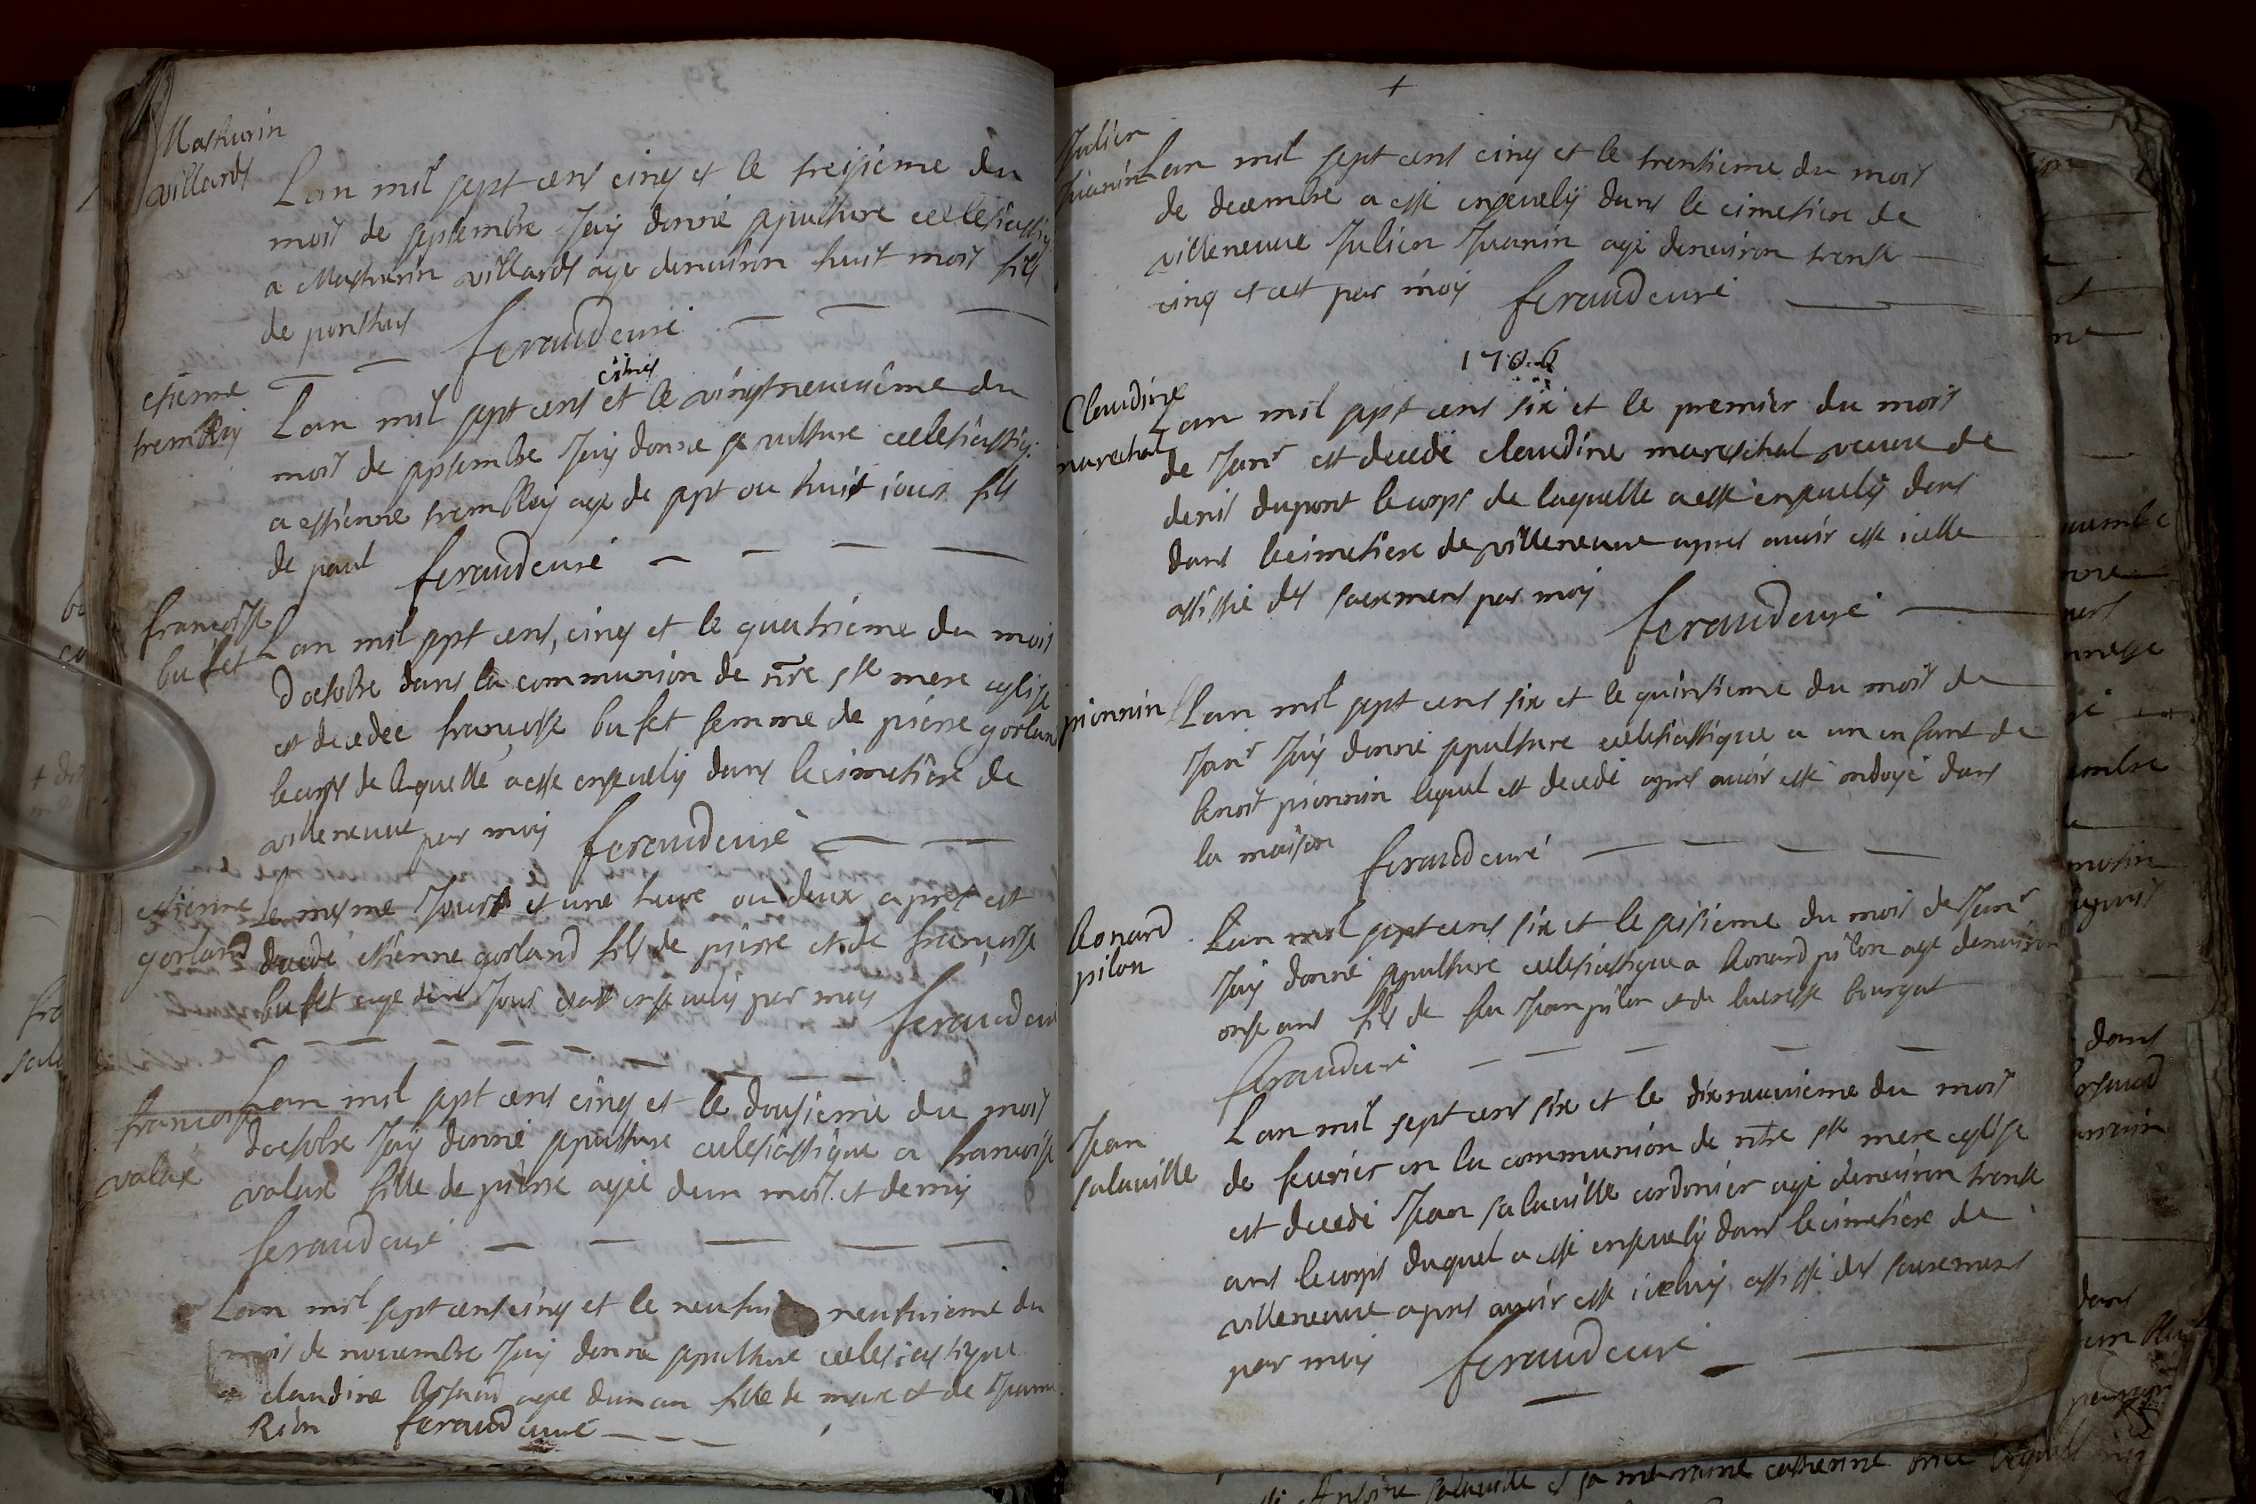 Mathurin
villards
Lan mil sept cens cinq et le treisieme du
mois de septembre Jay donné sepulture ecclesiastiq
a Mathurin villards agé denviron huit mois fils
de ponthus feraud curé
etienne
tremblay
cinq
Lan mil sept cens et le vingtneuvième du
mois de septembre Jay donné sepulture ecclesiastiq
a estienne tremblay agé de sept ou huit iours fils
de paul feraud curé
francoise
bufet
Lan mil sept cens, cinq et le quatrieme du mois
doctobre dans la communion de nre ste mere eglise
est decedée françoise bufet femme de pierre gorlan
le corps de laquelle a esté ensevely dans le cimetiere de
villeneuve par moy feraud curé
estienne
gorland
Le mesme Jour et une heure ou deux apres est
decedé etienne gorland fils de pierre et de françoise
bufet agé dun Jour et ensevely par moy feraud curé
francoise
valax
Lan mil sept cens cinq et le dousieme du mois
doctobre Jay donné sepulture ecclesiastique a francoise
valax fille de pierre agée dun mois et demy
feraud curé
Lan mil sept cens cinq et le neufvi neufvieme du
mois de novembre Jay donné sepulture ecclesiastique
a claudine agée dun an fille de marc et de Jeanne
Rion feraud curé
+
Julien
Juanin
Lan mil sept cens cinq et le trentieme du mois
de decembre a esté ensevely dans le cimetiere de
villeneuve Julien Juanin agé denviron trente
cinq et cest par moy feraud curé
1706
Claudine
marechal
Lan mil sept cens six et le premier du mois
de Janr est decedé claudine mareschal veuve de
denis dupont le corps de laquelle a esté ensevely dans
dans le cimetiere de villeneuve apres avoir esté icelle
assistée des sacremens par moy feraud curé
pionnin
Lan mil sept cens six et le quinsieme du mois de
Janr Jay donné sepulture ecclesiastique a un enfant de
benoit pionnin lequel est decedé apres avoir esté ondoyé dans
la maison feraud curé
leonard
pilon
Lan mil sept cens six et le sesieme du mois de Janr
Jay donné sepulture ecclesiastique a leonard pilon agé denviron
onse ans fils de feu Jean pilon et de lucresse bourgat
feraud curé
Jean
salaville
Lan mil sept cens six et le dixneuvieme du mois
de fevrier en la communion de ntre ste mere eglise
est decedé Jean salaville cordonier agé denviron trente
ans le corps duquel a esté ensevely dans le cimetiere de
villeneuve apres avoir esté iceluy assisté des sacremens
par moy feraud curé